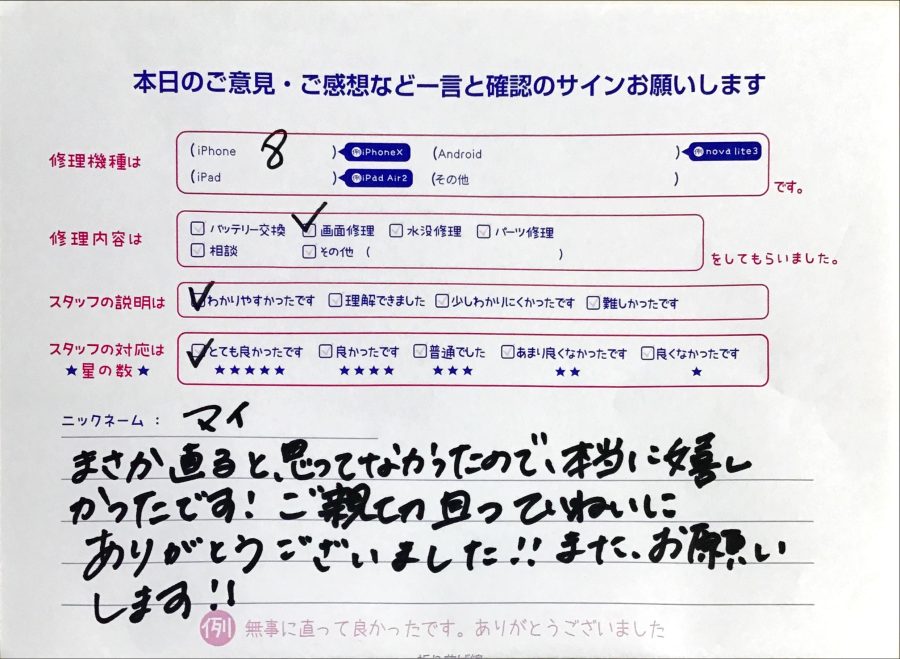 本日のご意見・ご感想など一言と確認のサインお願いします
修理機種は
(iPhone 8 ) iPhoneX (Android ) nova lite3
(iPad ) iPad Air2 (その他 ) です。
修理内容は
バッテリー交換 画面修理 水没修理 パーツ修理
相談 その他 ( ) をしてもらいました。
スタッフの説明は わかりやすかったです 理解できました 少しわかりにくかったです 難しかったです
スタッフの対応は とても良かったです 良かったです 普通でした あまり良くなかったです 良くなかったです
★星の数★ ★★★★★ ★★★★ ★★★ ★★ ★
ニックネーム: マイ
まさか直ると、思ってなかったので、本当に嬉し
かったです! ご親切且つていねいに
ありがとうございました!! また、お願い
します!!
例 無事に直って良かったです。ありがとうございました